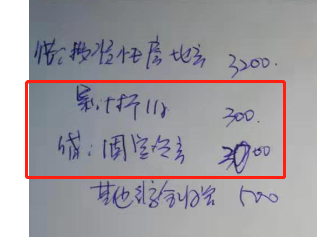 借:投资性房地产 3200.
累计折旧 300.
贷:固定资产 3000
其他综合收益 500